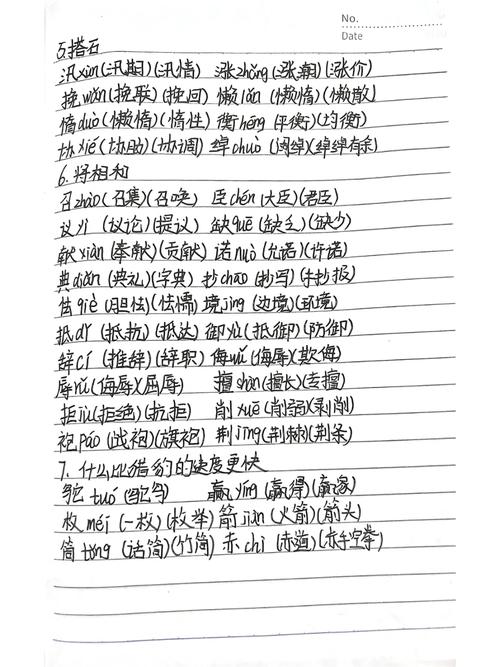 No.
Date
5.搭石
汛xùn(汛期)(汛情) 涨zhǎng(涨潮)(涨价)
挽wǎn(挽联)(挽回) 懒lǎn(懒惰)(懒散)
惰duò(懒惰)(惰性) 衡héng(平衡)(均衡)
协xié(协助)(协调) 绰chuò(阔绰)(绰绰有余)
6.将相和
召zhào(召集)(召唤) 臣chén(大臣)(君臣)
议yì(议论)(提议) 缺quē(缺乏)(缺少)
献xiàn(奉献)(贡献) 诺nuò(允诺)(许诺)
典diǎn(典礼)(字典) 抄chāo(抄写)(手抄报)
怯qiè(胆怯)(怯懦) 境jìng(边境)(环境)
抵dǐ(抵抗)(抵达) 御yù(抵御)(防御)
辞cí(推辞)(辞职) 侮wǔ(侮辱)(欺侮)
辱rǔ(侮辱)(屈辱) 擅shàn(擅长)(专擅)
拒jù(拒绝)(抗拒) 削xuē(削弱)(剥削)
袍páo(战袍)(旗袍) 荆jīng(荆棘)(荆条)
7.什么比猎豹的速度更快
鸵tuó(鸵鸟) 赢yíng(赢得)(赢家)
枚méi(一枚)(枚举) 箭jiàn(火箭)(箭头)
筒tǒng(话筒)(竹筒) 赤chì(赤道)(赤手空拳)